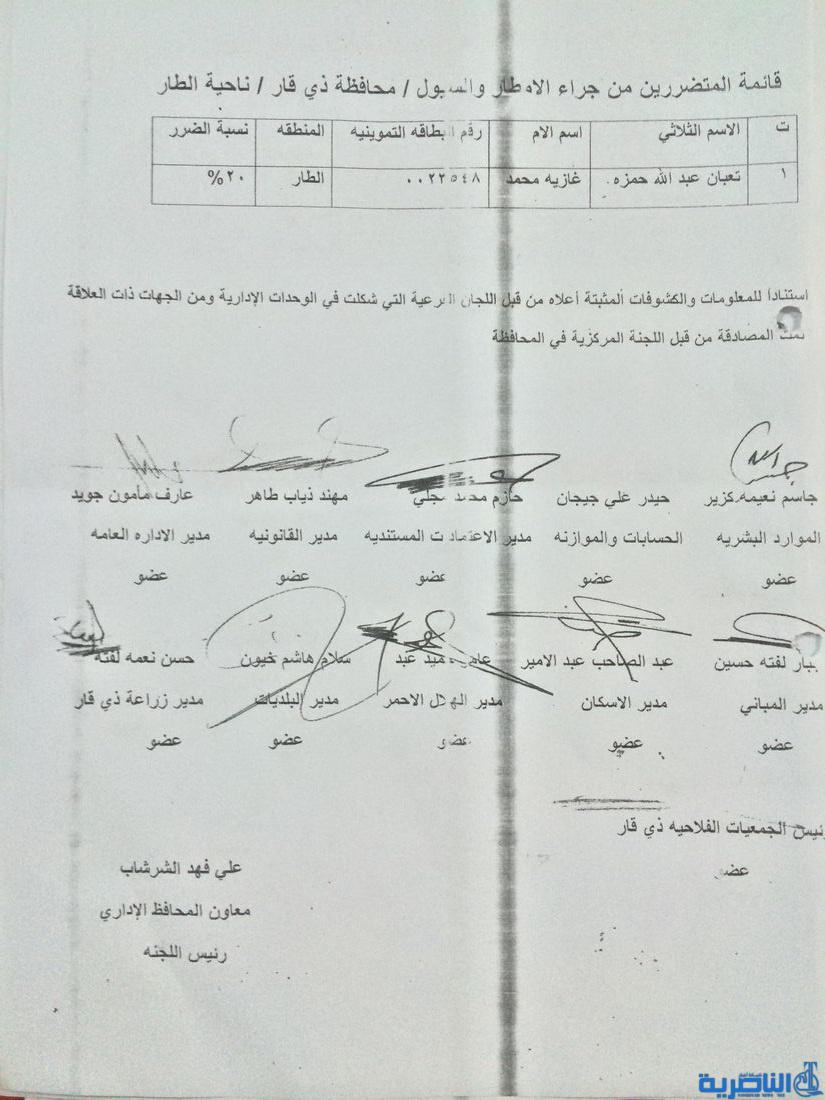 قائمة المتضررين من جراء الامطار والسيول / محافظة ذي قار / ناحية الطار
ت الاسم الثلاثي اسم الام رقم البطاقه التموينيه المنطقه نسبة الضرر
١ تعبان عبد الله حمزه. غازيه محمد ٠٠٢٢٥٤٨ الطار ٢٠%
استنادا للمعلومات والكشوفات المثبتة أعلاه من قبل اللجان الفرعية التي شكلت في الوحدات الإدارية ومن الجهات ذات العلاقة
تمت المصادقة من قبل اللجنة المركزية في المحافظة
جاسم نعيمه كزير حيدر علي جيجان حازم محمد مجلي مهند ذياب طاهر عارف مأمون جويد
الموارد البشريه الحسابات والموازنه مدير الاعتمادات المستنديه مدير القانونيه مدير الاداره العامه
عضو عضو عضو عضو عضو
لفته حسين عبد الصاحب عبد الامير عبد سلام هاشم خيون حسن نعمه لفته
مدير المباني مدير الاسكان مدير الهلال الاحمر مدير البلديات مدير زراعة ذي قار
عضو عضو عضو عضو عضو
رئيس الجمعيات الفلاحيه ذي قار
عضو
علي فهد الشرشاب
معاون المحافظ الإداري
رئيس اللجنه
الناصرية